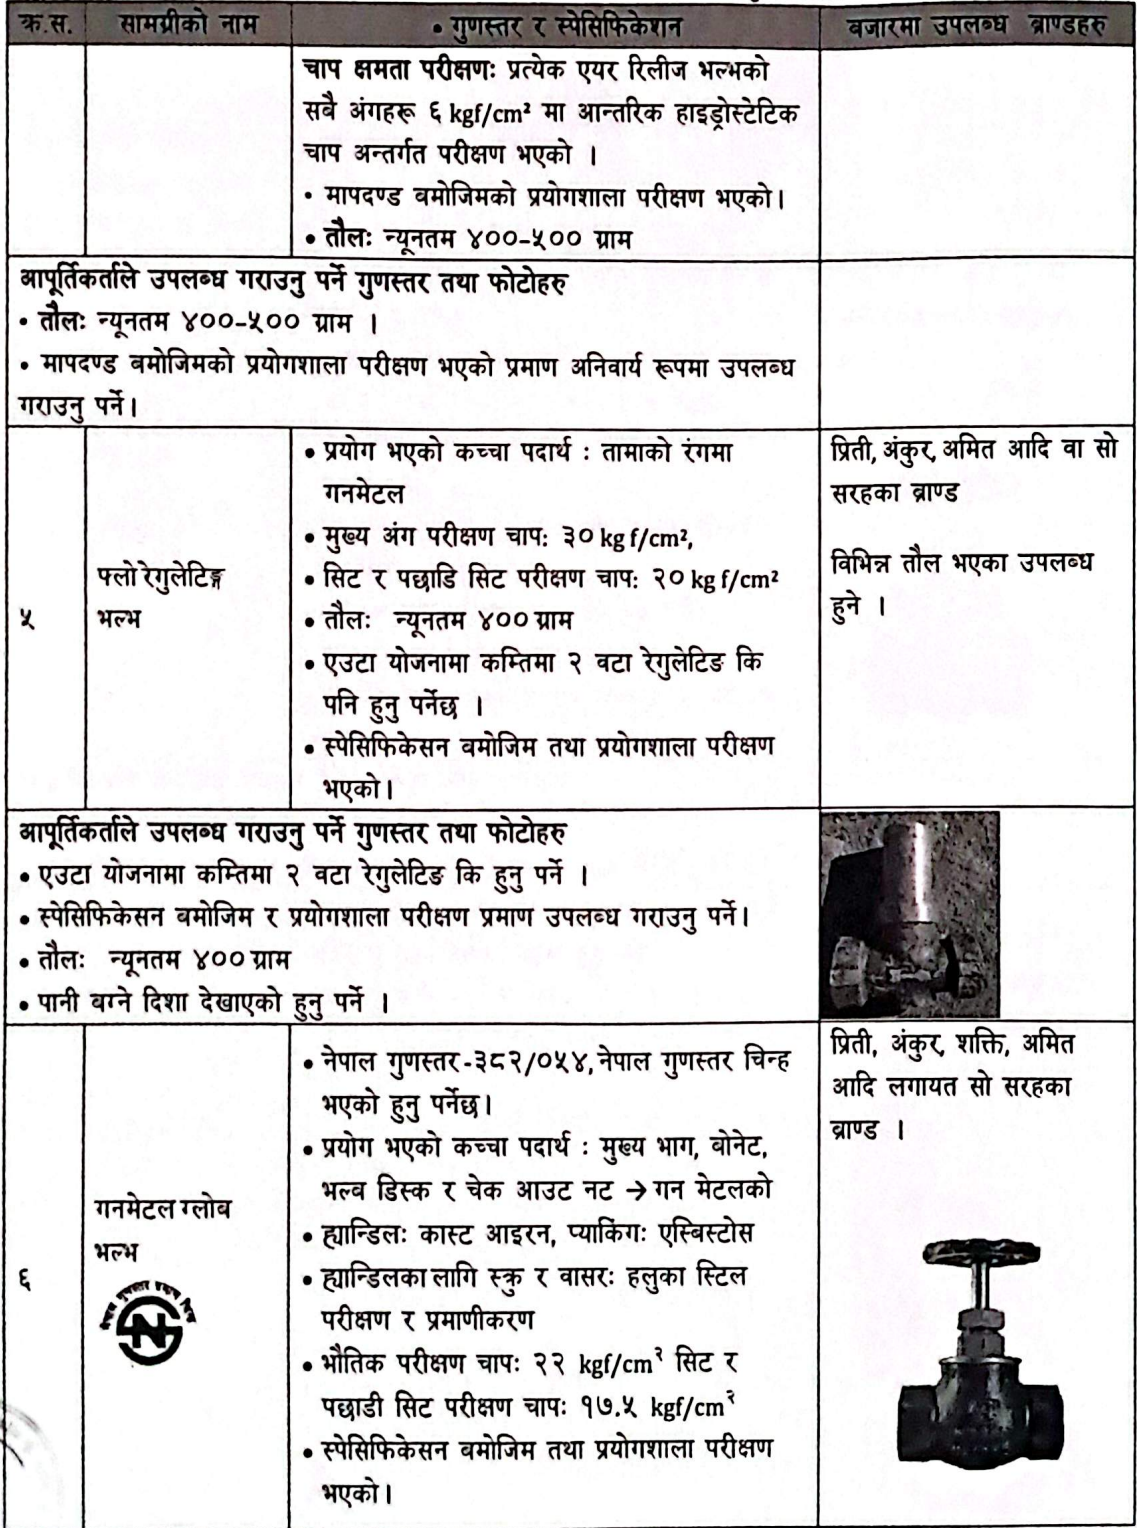 क्र.स. सामग्रीको नाम • गुणस्तर र स्पेसिफिकेशन बजारमा उपलब्ध ब्राण्डहरु
चाप क्षमता परीक्षणः प्रत्येक एयर रिलीज भल्भको
सबै अंगहरू ६ kgf/cm² मा आन्तरिक हाइड्रोस्टेटिक
चाप अन्तर्गत परीक्षण भएको ।
• मापदण्ड बमोजिमको प्रयोगशाला परीक्षण भएको।
• तौलः न्यूनतम ४००-५०० ग्राम
आपूर्तिकर्ताले उपलब्ध गराउनु पर्ने गुणस्तर तथा फोटोहरु
• तौलः न्यूनतम ४००-५०० ग्राम ।
• मापदण्ड बमोजिमको प्रयोगशाला परीक्षण भएको प्रमाण अनिवार्य रूपमा उपलब्ध
गराउनु पर्ने।
५
फ्लो रेगुलेटिङ्ग
भल्भ
• प्रयोग भएको कच्चा पदार्थ : तामाको रंगमा
गनमेटल
• मुख्य अंग परीक्षण चाप: ३० kg f/cm²,
• सिट र पछाडि सिट परीक्षण चाप: २० kg f/cm²
• तौलः न्यूनतम ४०० ग्राम
• एउटा योजनामा कम्तिमा २ वटा रेगुलेटिङ कि
पनि हुनु पर्नेछ ।
• स्पेसिफिकेसन बमोजिम तथा प्रयोगशाला परीक्षण
भएको।
प्रिती, अंकुर, अमित आदि वा सो
सरहका ब्राण्ड
विभिन्न तौल भएका उपलब्ध
हुने ।
आपूर्तिकर्ताले उपलब्ध गराउनु पर्ने गुणस्तर तथा फोटोहरु
• एउटा योजनामा कम्तिमा २ वटा रेगुलेटिङ कि हुनु पर्ने ।
• स्पेसिफिकेसन बमोजिम र प्रयोगशाला परीक्षण प्रमाण उपलब्ध गराउनु पर्ने।
• तौलः न्यूनतम ४०० ग्राम
• पानी बग्ने दिशा देखाएको हुनु पर्ने ।
६
गनमेटल ग्लोब
भल्भ
नेपाल गुणस्तर प्रमाण चिन्ह
N
• नेपाल गुणस्तर-३८२/०५४, नेपाल गुणस्तर चिन्ह
भएको हुनु पर्नेछ।
• प्रयोग भएको कच्चा पदार्थ : मुख्य भाग, बोनेट,
भल्ब डिस्क र चेक आउट नट → गन मेटलको
• ह्यान्डिलः कास्ट आइरन, प्याकिंगः एस्बिस्टोस
• ह्यान्डिलका लागि स्क्रु र वासरः हलुका स्टिल
परीक्षण र प्रमाणीकरण
• भौतिक परीक्षण चापः २२ kgf/cm² सिट र
पछाडी सिट परीक्षण चापः १७.५ kgf/cm²
• स्पेसिफिकेसन बमोजिम तथा प्रयोगशाला परीक्षण
भएको।
प्रिती, अंकुर, शक्ति, अमित
आदि लगायत सो सरहका
ब्राण्ड ।